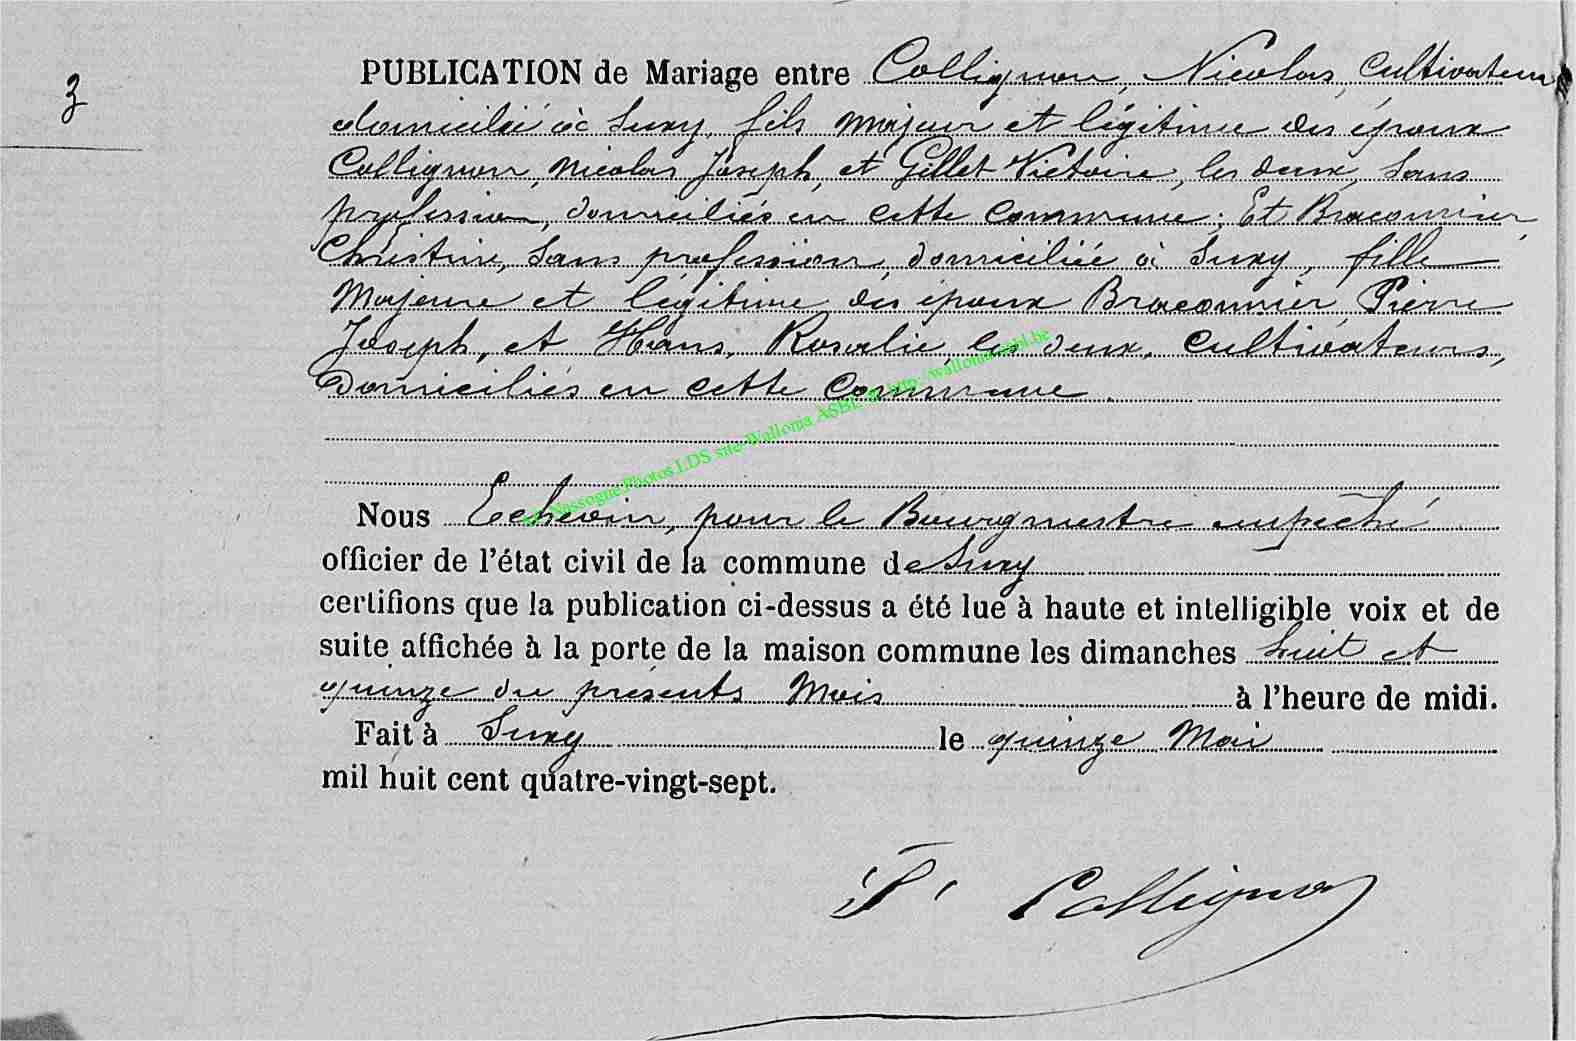 3
PUBLICATION de Mariage entre Collignon, Nicolas, cultivateur
domicilié à Suxy, fils majeur et légitime des époux
Collignon, Nicolas Joseph, et Gillet Victoire, les deux, sans
profession, domiciliés en cette commune; Et Braconnier,
Christine, sans profession, domiciliée à Suxy, fille
Majeure et légitime des époux Braconnier, Pierre
Joseph, et Hans, Rosalie, les deux, cultivateurs,
Domiciliés en cette commune.
Nassogne Photos LDS site Wallonia ASBL http://wallonia-asbl.be
Nous Echevin, pour le Bourgmestre empêché
officier de l'état civil de la commune de Suxy
certifions que la publication ci-dessus a été lue à haute et intelligible voix et de
suite affichée à la porte de la maison commune les dimanches huit et
quinze du présents Mois à l'heure de midi.
Fait à Suxy le quinze Mai
mil huit cent quatre-vingt-sept.
Collignon